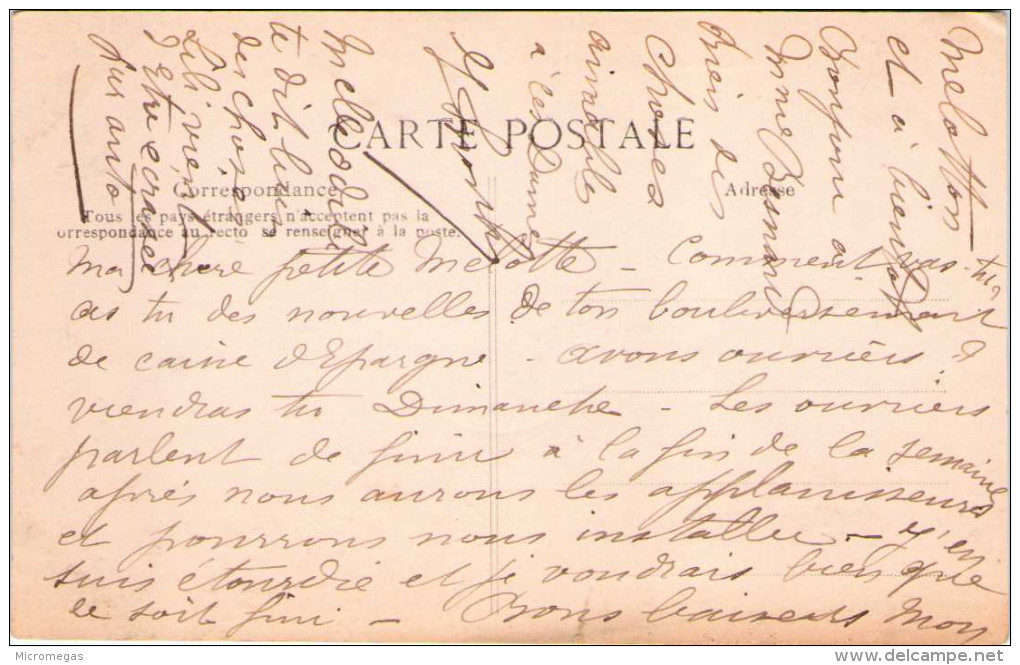 CARTE POSTALE
Correspondance
Adresse
Tous les pays étrangers n'acceptent pas la
orrespondance au recto se renseigner à la poste.
Ma chere petite Melotte - Comment vas-tu,
as tu des nouvelles de ton boulversement
de caisse d'Epargne - avons ouvriers ?
viendras tu Dimanche - Les ouvriers
parlent de finir à la fin de la semaine
aprés nous aurons les applanisseurs
et pourrons nous installer - j'en
suis étourdie et je voudrais bien que
ce soit fini - Bons baisers Mon
Melotton
et à bientot
Bonjour à
Mme Besnard
Breis des
Choses
aimables
à ces Dames
Melle
te dit bien
des choses
Lili vient
d'être écrasée
par auto
Micromegas
delcampe.net